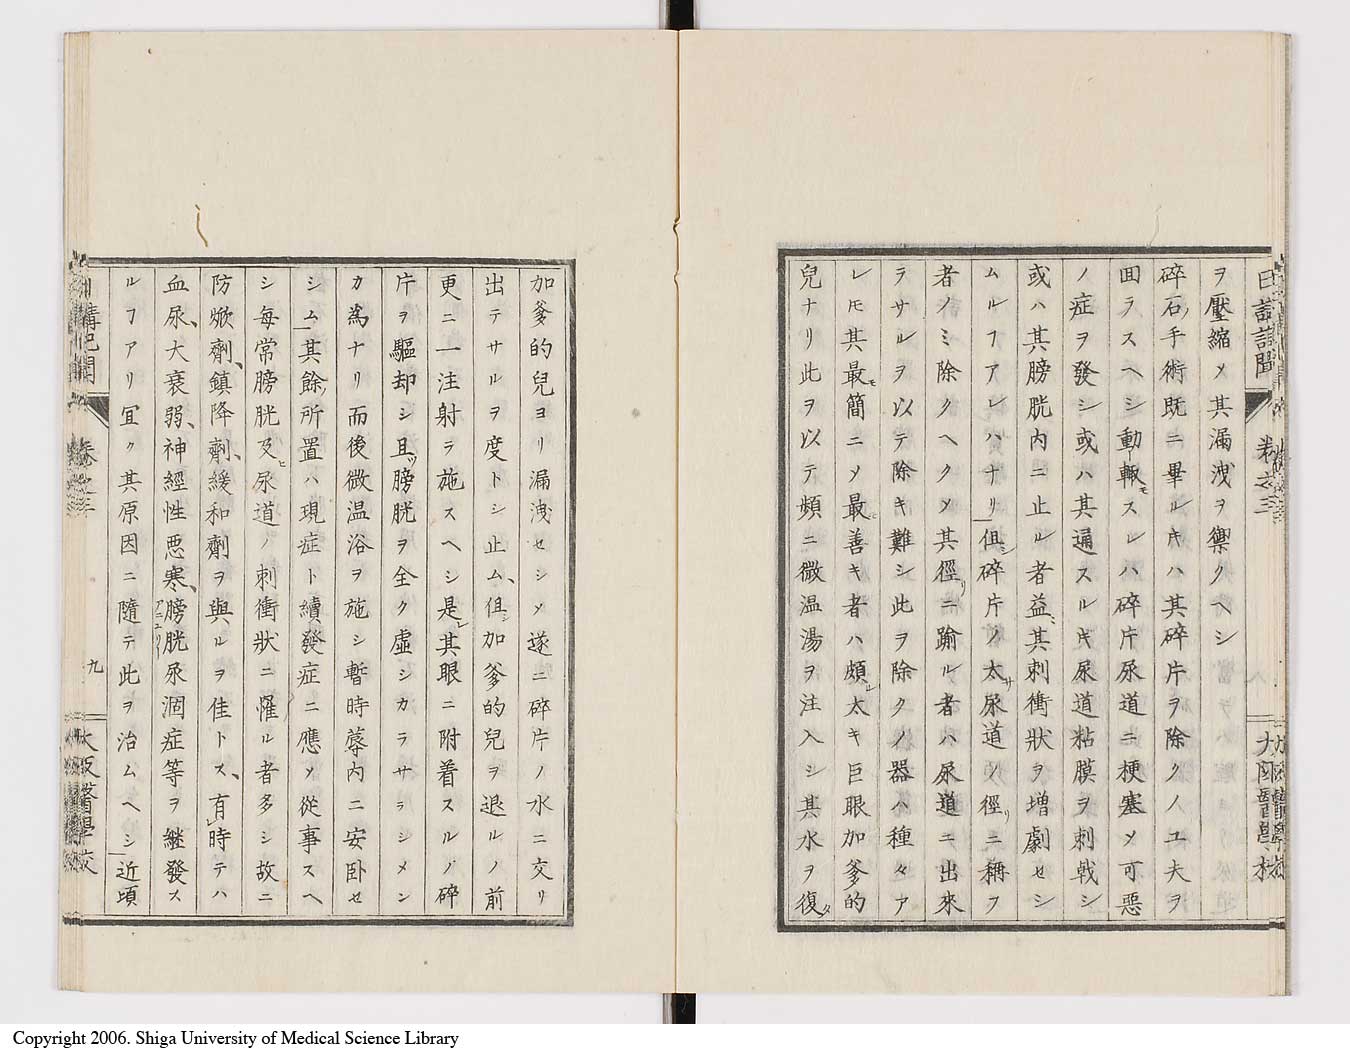 ヲ壓縮メ其漏洩ヲ禦クヘシ
碎石手術既ニ畢ルキハ其碎片ヲ除クノ工夫ヲ
回ラスヘシ動輙スルハ碎片尿道ニ梗塞メ可惡
ノ症ヲ發シ或ハ其通スルキ尿道粘膜ヲ刺戟シ
或ハ其膀胱内ニ止ル者益其刺衝狀ヲ增劇セシ
ムルヿアレハナリ俱碎片ノ太尿道ノ徑ニ稱フ
者ノミ除クヘクメ其徑ニ踰ル者ハ尿道ニ出來
ラサルヲ以テ除キ難シ此ヲ除クノ器ハ種々ア
レモ其最簡ニメ最善キ者ハ頗太キ巨眼加爹的
兒ナリ此ヲ以テ頻ニ微温湯ヲ注入シ其水ヲ復
加爹的兒ヨリ漏洩セシメ遂ニ碎片ノ水ニ交リ
出テサルヲ度トシ止ム、俱加爹的兒ヲ退ルノ前
更ニ一注射ヲ施スヘシ是其眼ニ附着スルノ碎
片ヲ驅却シ且膀胱ヲ全ク虛シカラサラシメン
カ為ナリ而後微温浴ヲ施シ暫時蓐内ニ安卧セ
シム其餘所置ハ現症ト續發症ニ應メ從事スヘ
シ每常膀胱及尿道ノ刺衝狀ニ罹ル者多シ故ニ
防焮劑、鎮降劑、緩和劑ヲ與ルヲ佳トス、有時テハ
血尿、大衰弱、神經性惡寒、膀胱尿涸症等ヲ継發ス
ルヿアリ冝ク其原因ニ隨テ此ヲ治ムヘシ近頃
講記聞
卷之三
九
大阪醫學校